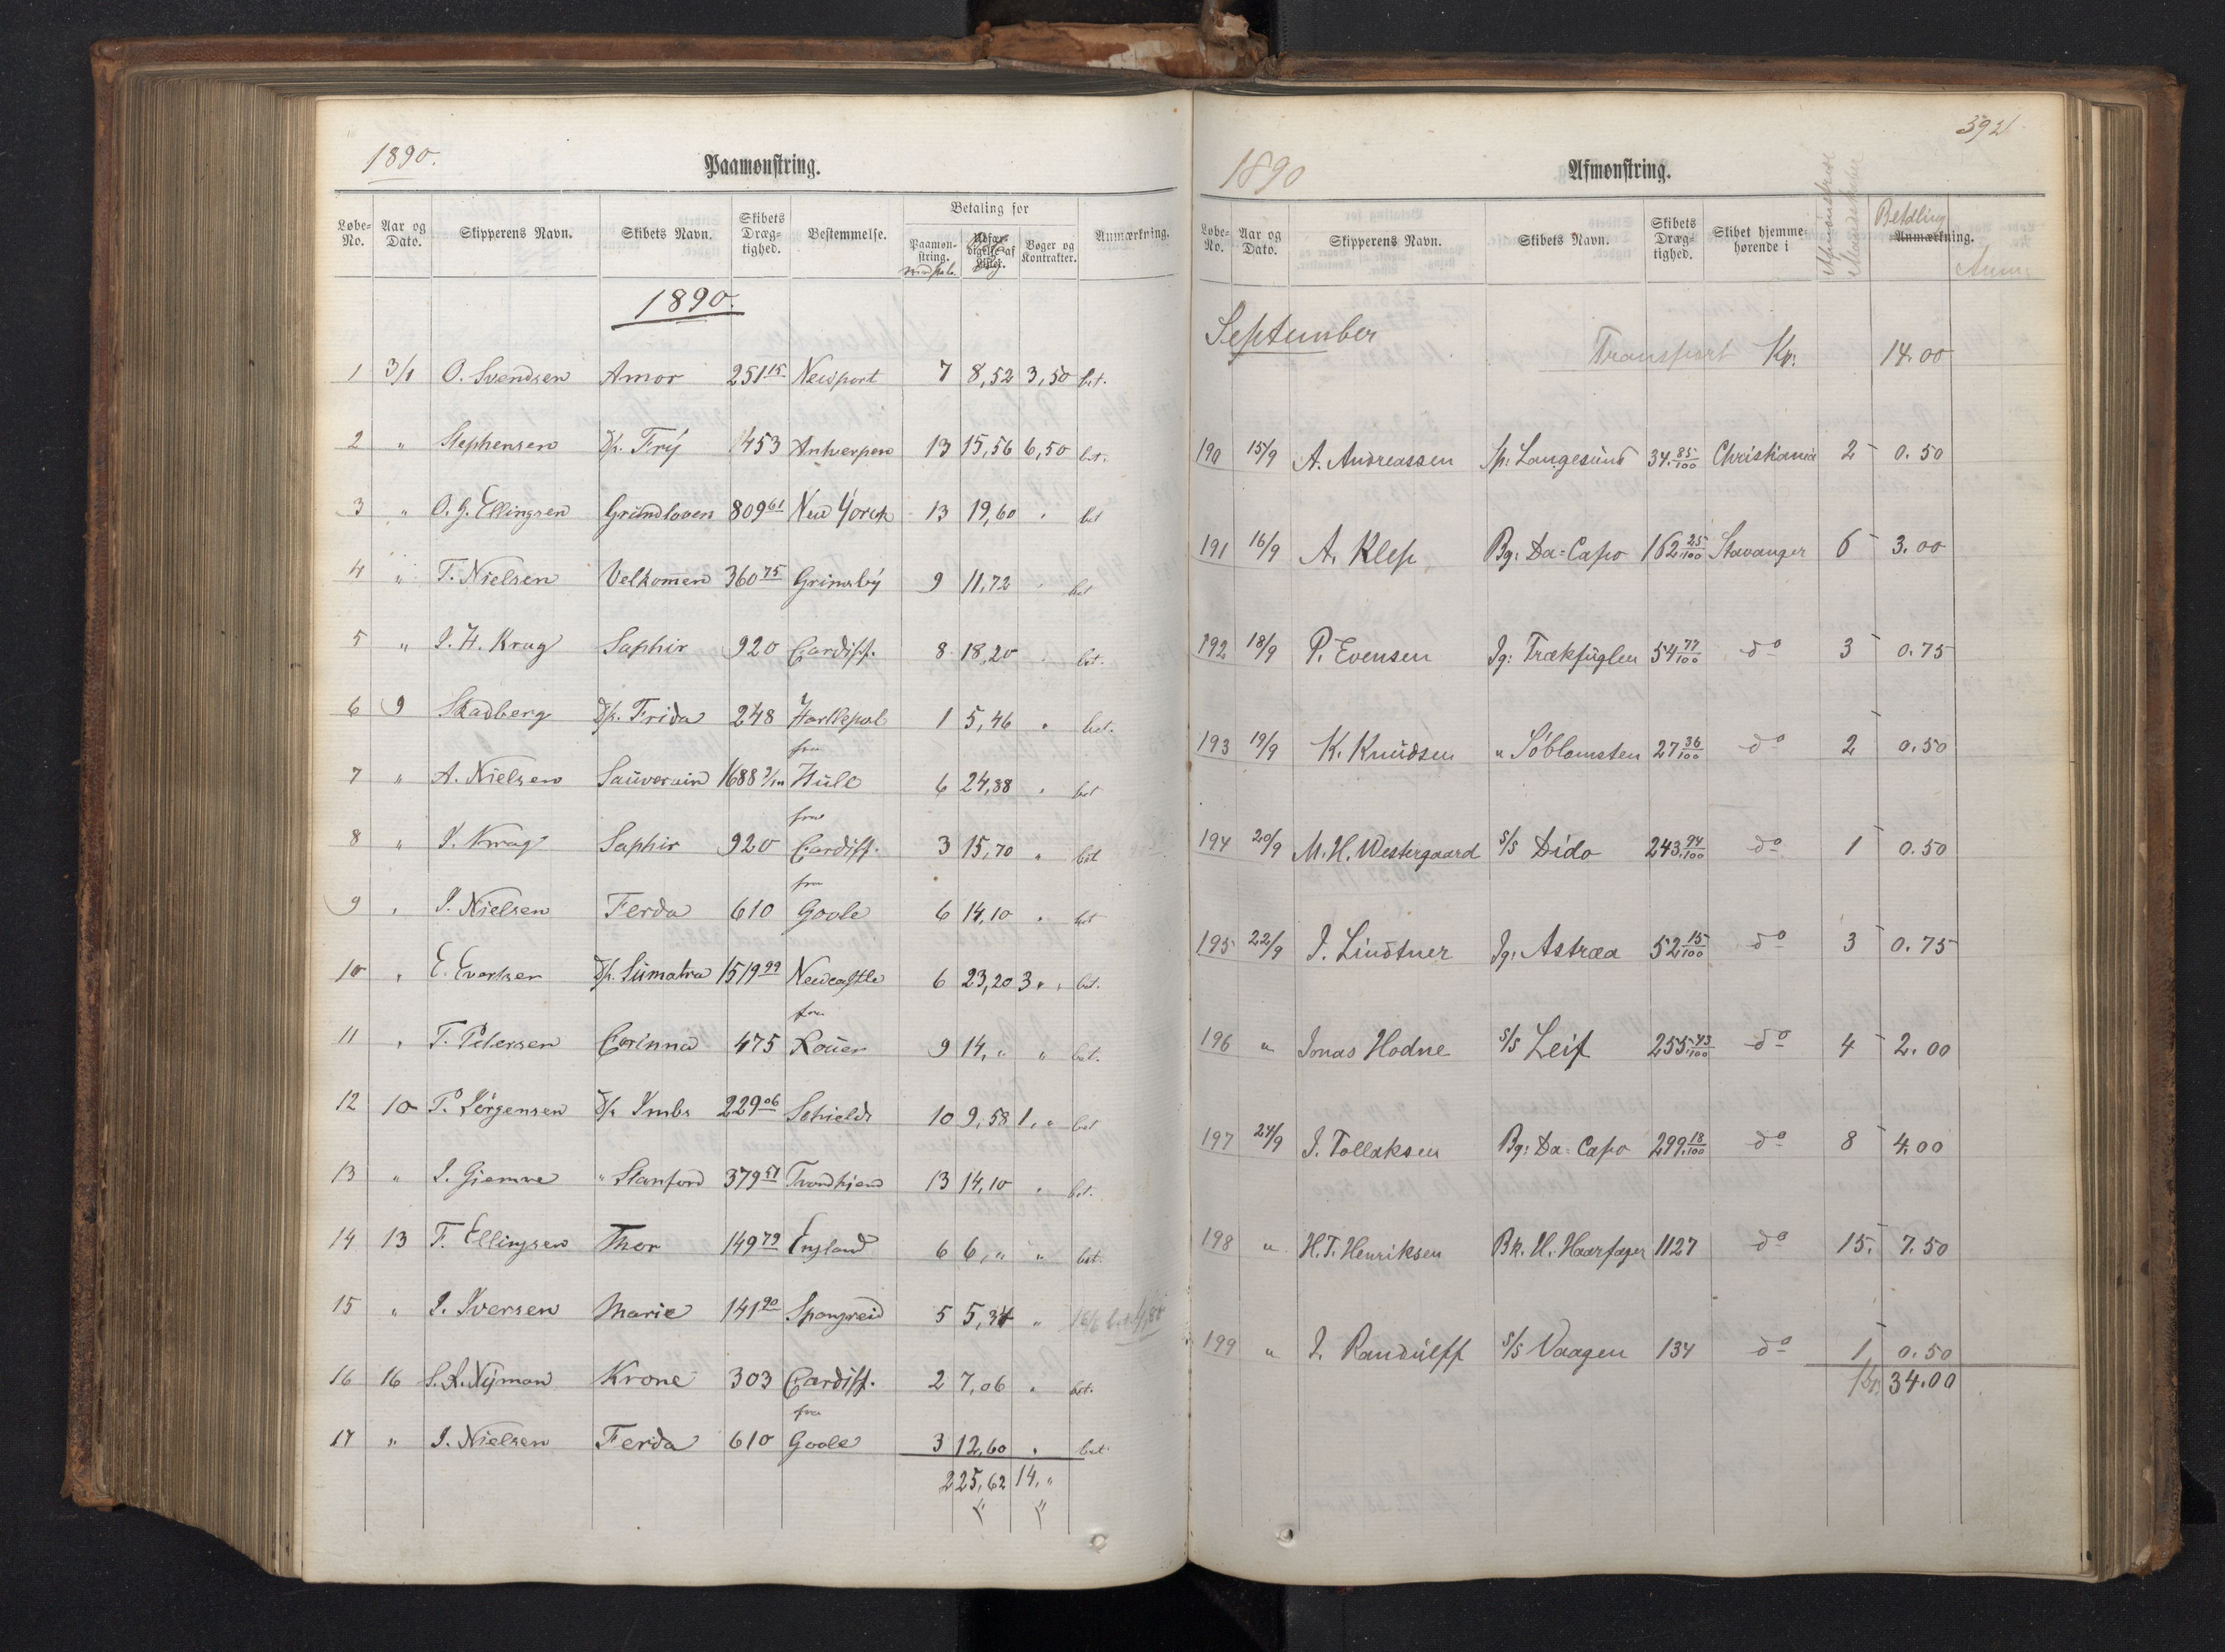 1890.
Paamønstring.
Løbe-No. Aar og Dato. Skipperens Navn. Skibets Navn. Skibets Dræg-tighed. Bestemmelse. Betaling for Paamøn-string. Bøger og Kontrakter. Anmærkning.
1890.
1 3/1 O. Svendsen Amor 251 15 Newport 7 8,52 3,50 bet.
2 " Stephensen Dp. Frÿ 1453 Antwerpen 13 15,56 6,50 bet.
3 " O. G. Ellingsen Grundloven 809 61 New Yorck 13 19,60 " bet
4 " T. Nielsen Velkomen 360 75 Grimsbÿ 9 11,72 " bet
5 " I. H. Krag Saphir 920 Cardiff. 8 18,20 " bet.
6 9 Skadberg Dp. Frida 248 Hartlepol 1 5,46 " bet.
7 " A. Nielsen Sauverain 1688 fra Hull 6 24,88 " bet
8 " I. Krag Saphir 920 fra Cardiff. 3 15,70 " bet
9 " I. Nielsen Ferda 610 fra Goole 6 14,10 " bet
10 " E. Evertsen Dp. Sumatra 1519 99 Newcastle 6 23,20 3 " " bet.
11 " T. Petersen Corinna 475 fra Rouen 9 14, " " bet.
12 10 P. Jörgensen Dp Imbs 229 06 Schields 10 9,58 1, " bet
13 " I. Giemre " Stanford 379 51 Trondhiem 13 14,10 " bet.
14 13 F. Ellingsen Thor 149 79 England 6 6, " " bet.
15 " I. Iversen Marie 141 90 Spangreid 5 5,34 "
16 16 S. L. Nÿman Krone 303 Cardiff. 2 7,06 " bet.
17 " I. Nielsen Ferda 610 fra Goole 3 12,60 " bet
225,62 14, "
" "
392
1890
Afmønstring.
Løbe-No. Aar og Dato. Skipperens Navn. Skibets Navn. Skibets Dræg-tighed. Skibet hjemme-hørende i Afmønstrede Mandskaber Betaling Anmærkning. Anm:
September
Transport Kr. 14.00
190 15/9 A. Andreassen Sp: Langesund 34.85/100 Christiania 2 - 0.50
191 16/9 A. Klep Bg: Da-Capo 162.25/100 Stavanger 6 - 3.00
192 18/9 P. Evensen Jg: Trækfuglen 54 77/100 do 3 - 0.75
193 19/9 K. Knudsen " Söblomsten 27 36/100 do 2 - 0.50
194 20/9 M. H. Westergaard S/S Dido 243.94/100 do 1 - 0.50
195 22/9 I. Lindtner Jg: Astræa 52 15/100 do 3 - 0.75
196 " Jonas Hodne S/S Leif 255.43/100 do 4 - 2.00
197 24/9 I. Tollaksen Bg: Da-Capo 299.18/100 do 8 - 4.00
198 " H. T. Henriksen Bk. H. Haarfager 1127 do 15. 7.50
199 " I. Randulff S/S Vaagen 134 do 1 - 0.50
Kr. 34.00